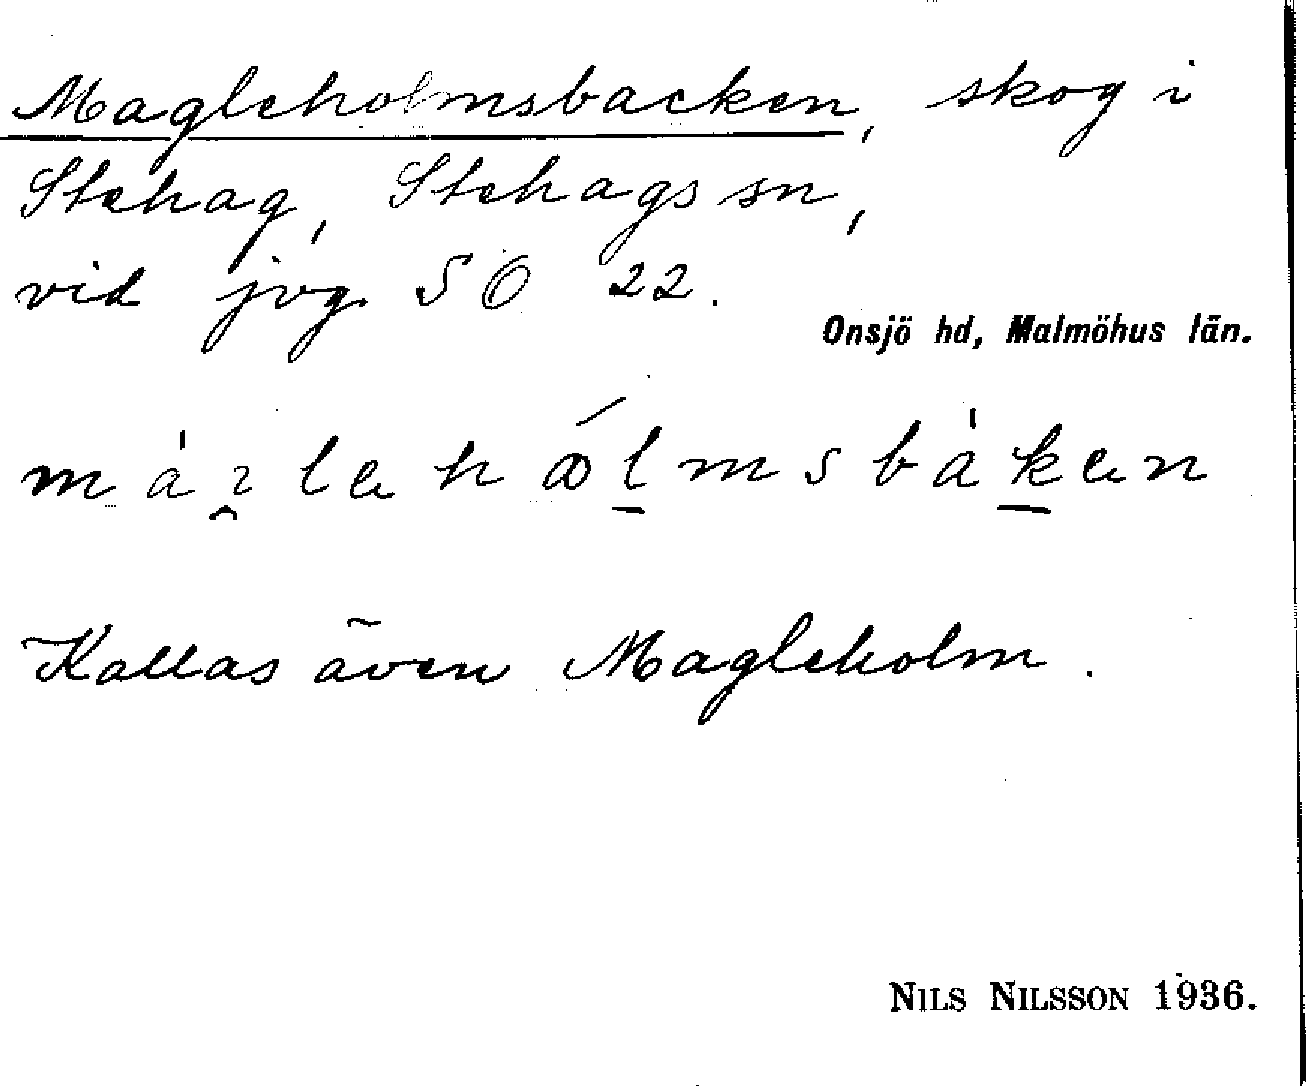 Magleholmsbacken, skog i
Stehag, Stehags sn,
vid jvg. SÖ 22.
Onsjö hd, Malmöhus län.
Kallas även Magleholm.
NILS NILSSON 1936.